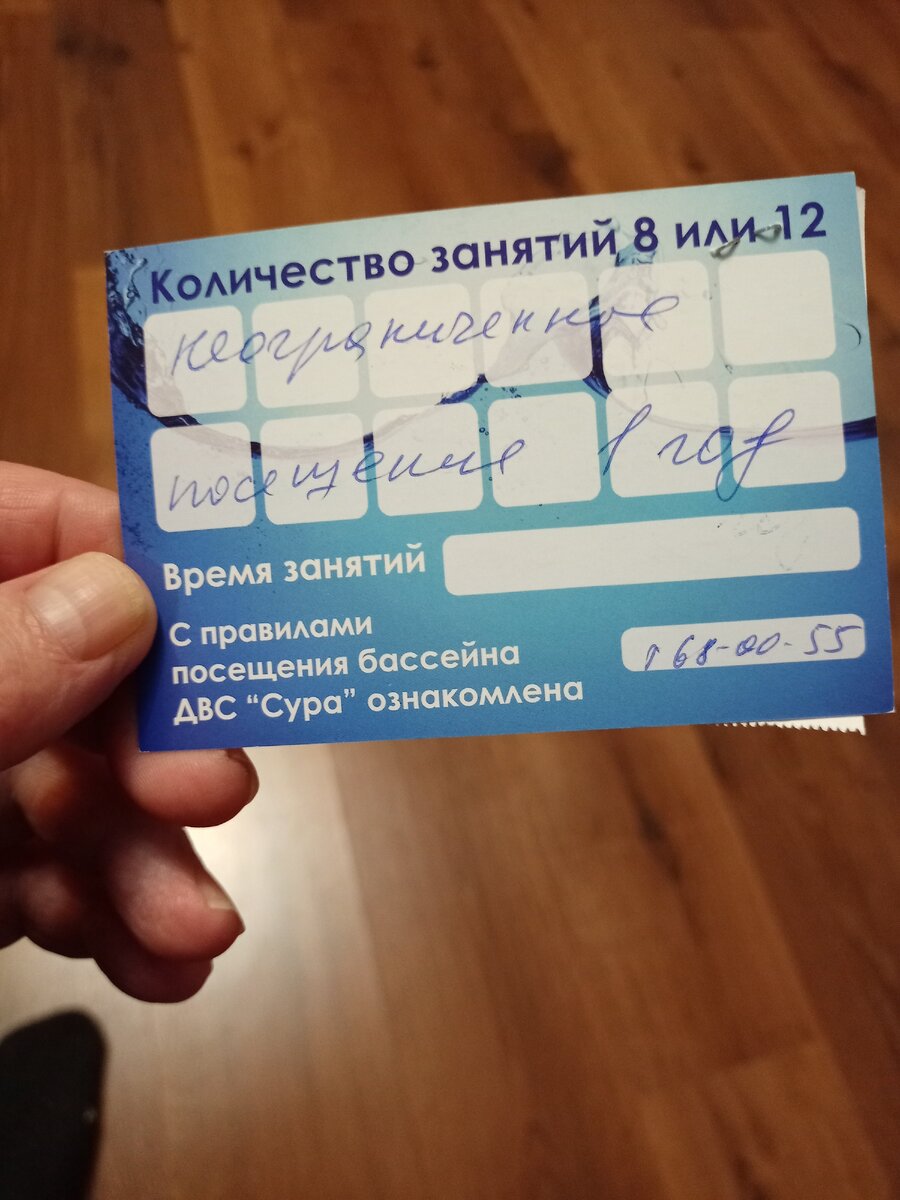 Количество занятий 8 или 12
неограниченное
посещение 1 год
Время занятий
С правилами
посещения бассейна
ДВС “Сура” ознакомлена
т 68-00-55